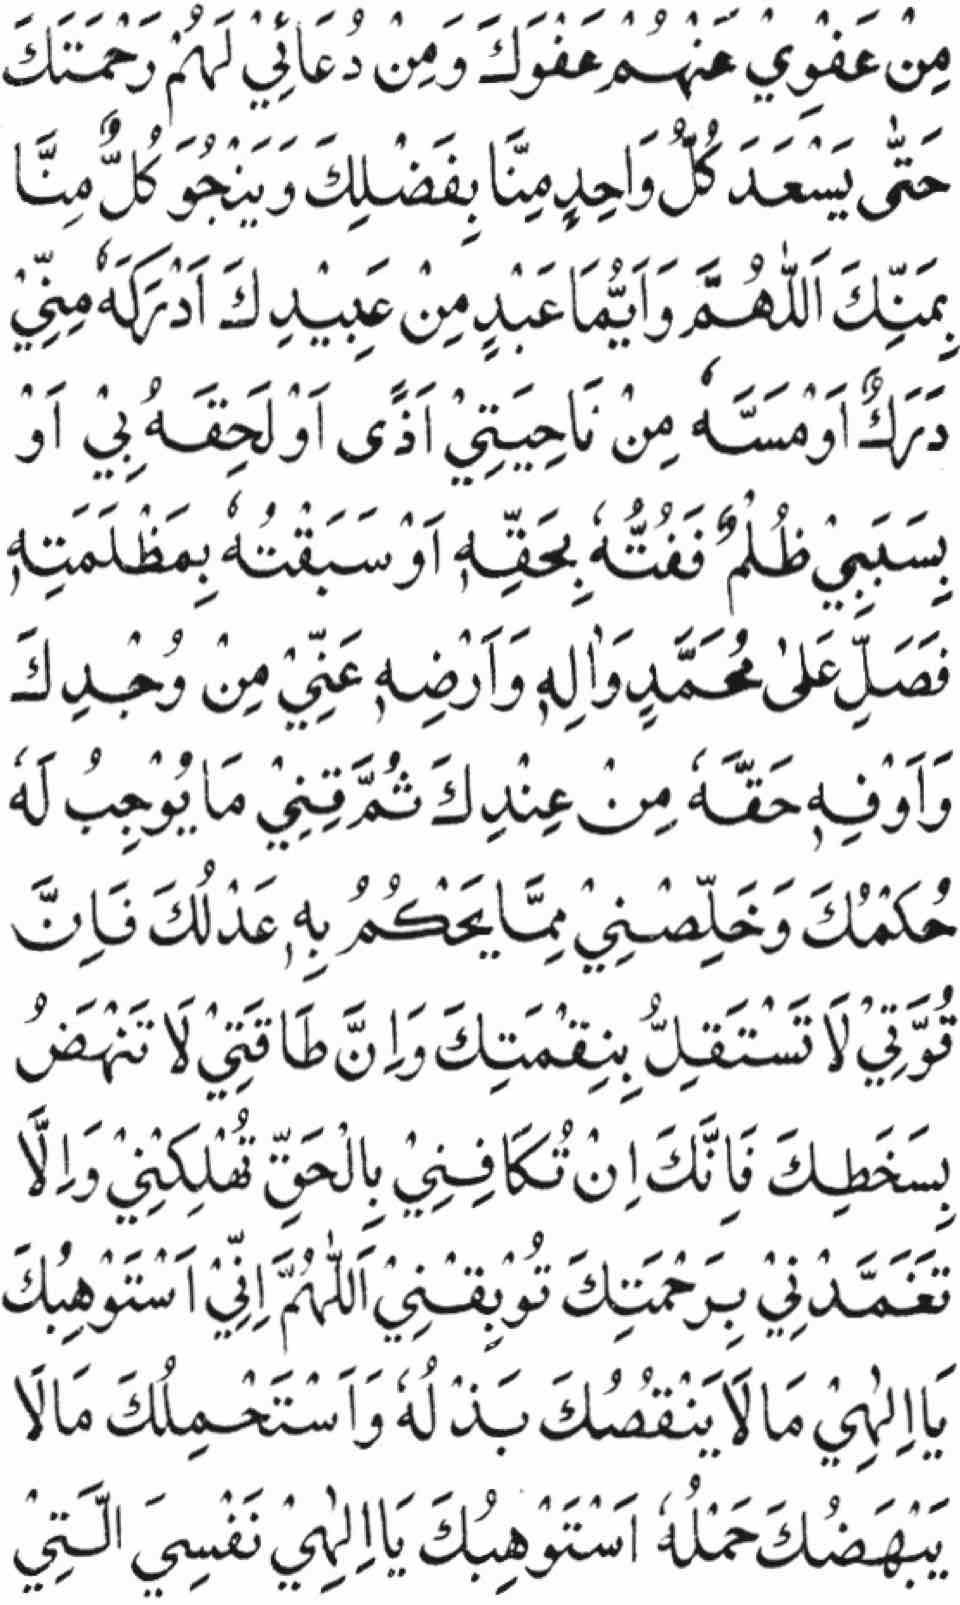 مِنْ عَفْوِيْ عَنْهُمْ عَفْوَكَ وَمِنْ دُعَائِيْ لَهُمْ رَحْمَتَكَ
حَتّٰى يَسْعَدَ كُلُّ وَاحِدٍ مِنَّا بِفَضْلِكَ وَيَنْجُوَ كُلٌّ مِنَّا
بِمَنِّكَ اَللّٰهُمَّ وَاَيُّمَا عَبْدٍ مِنْ عَبِيْدِكَ اَدْرَكَهٗ مِنِّيْ
دَرَكٌ اَوْ مَسَّهٗ مِنْ نَاحِيَتِيْ اَذًى اَوْ لَحِقَهُ بِيْ اَوْ
بِسَبَبِيْ ظُلْمٌ فَفُتُّهٗ بِحَقِّهٖ اَوْ سَبَقْتُهٗ بِمَظْلَمَتِهٖ
فَصَلِّ عَلٰى مُحَمَّدٍ وَاٰلِهٖ وَاَرْضِهٖ عَنِّيْ مِنْ وُجْدِكَ
وَاَوْفِهٖ حَقَّهٗ مِنْ عِنْدِكَ ثُمَّ قِنِيْ مَا يُوْجِبُ لَهٗ
حُكْمُكَ وَخَلِّصْنِيْ مِمَّا يَحْكُمُ بِهٖ عَدْلُكَ فَاِنَّ
قُوَّتِيْ لَا تَسْتَقِلُّ بِنِقْمَتِكَ وَاِنَّ طَاقَتِيْ لَا تَنْهَضُ
بِسَخَطِكَ فَاِنَّكَ اِنْ تُكَافِنِيْ بِالْحَقِّ تُهْلِكْنِيْ وَاِلَّا
تَغَمَّدْنِيْ بِرَحْمَتِكَ تُوْبِقْنِيْ اَللّٰهُمَّ اِنِّيْ اَسْتَوْهِبُكَ
يَا اِلٰهِيْ مَا لَا يَنْقُصُكَ بَذْلُهٗ وَاَسْتَحْمِلُكَ مَا لَا
يَبْهَضُكَ حَمْلُهٗ اَسْتَوْهِبُكَ يَا اِلٰهِيْ نَفْسِيَ الَّتِيْ